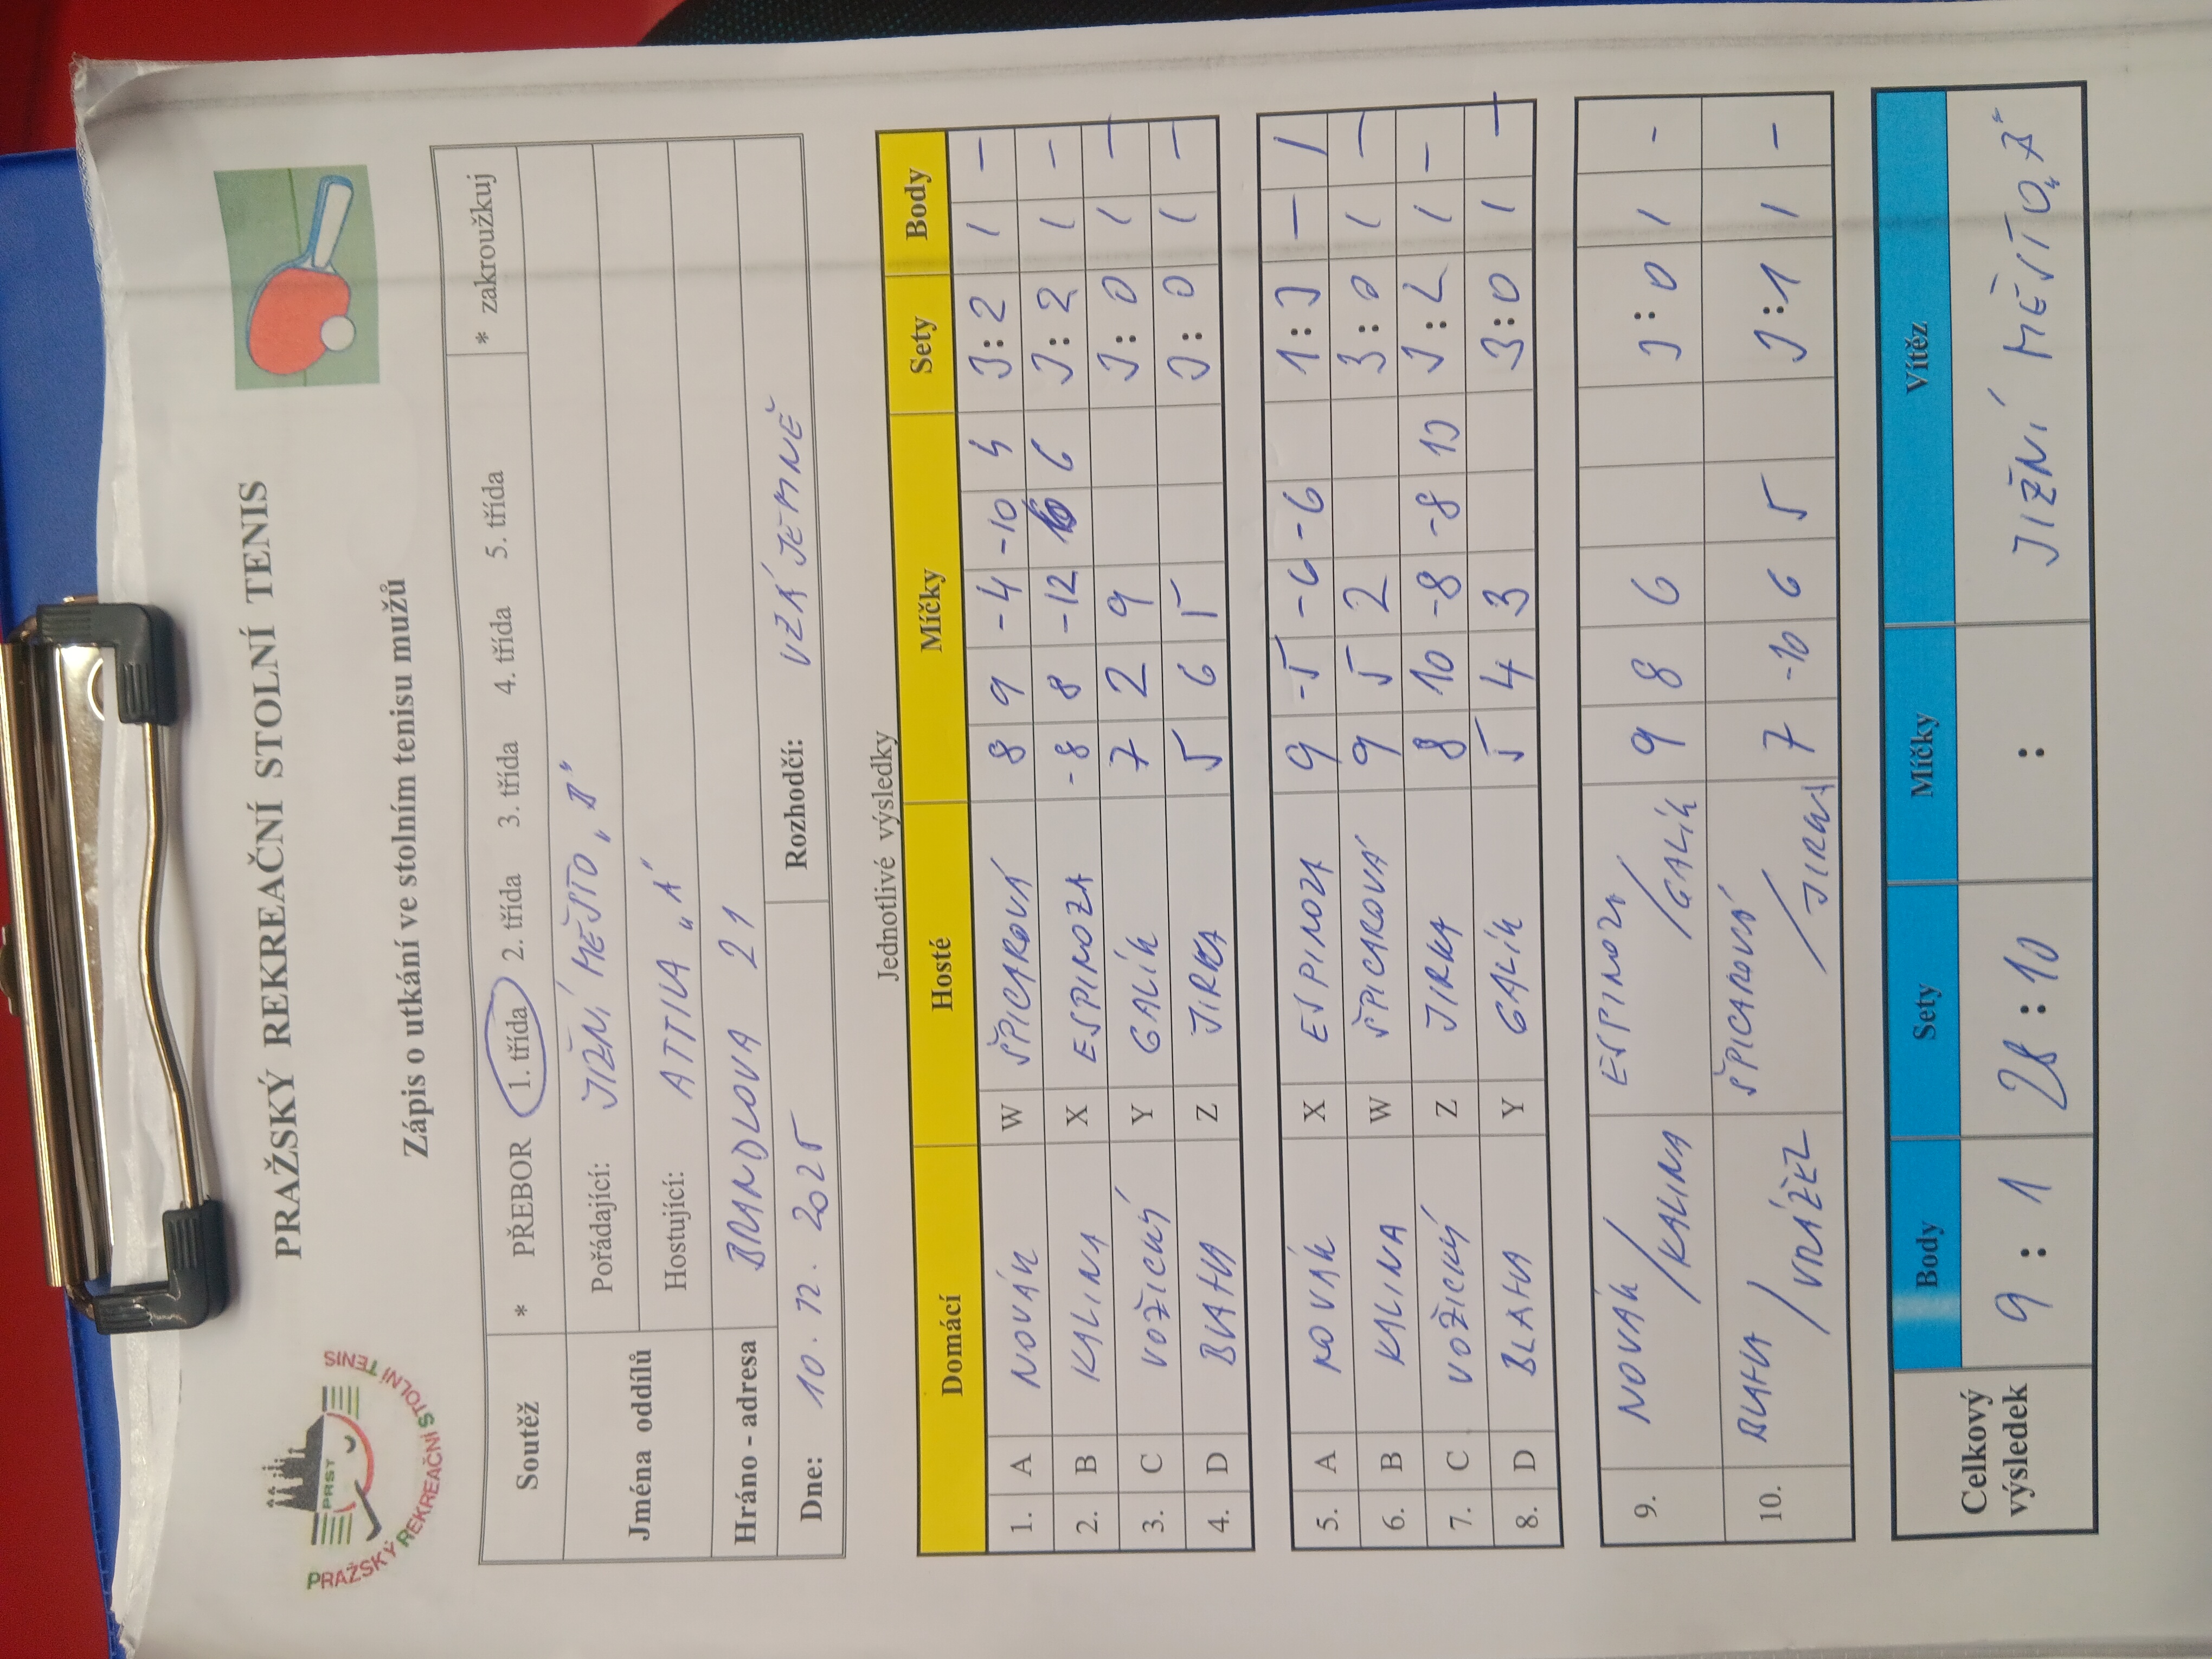 PRAŽSKÝ REKREAČNÍ STOLNÍ TENIS
PRST
PRAŽSKÝ REKREAČNÍ STOLNÍ TENIS
Zápis o utkání ve stolním tenisu mužů
Soutěž * PŘEBOR 1. třída 2. třída 3. třída 4. třída 5. třída * zakroužkuj
Jména oddílů Pořádající: JIŽNÍ MĚSTO
Hostující: ATTILA „A"
Hráno - adresa BRANDLOVA 21
Dne: 10. 12. 2025 Rozhodčí: VZÁJEMNĚ
Jednotlivé výsledky
Domácí Hosté Míčky Sety Body
1. A NOVÁK W ŠPICAROVÁ 8 9 -4 -10 4 3:2 1 -
2. B KALINA X ESPINOZA -8 8 -12 6 3:2 1 -
3. C VOŽICKÝ Y GALÍK 7 2 9 3:0 1 -
4. D BLAHA Z JIRKA 5 6 5 3:0 1 -
5. A NOVÁK X ESPINOZA 9 -5 -6 -6 1:3 - 1
6. B KALINA W ŠPICAROVÁ 9 5 2 3:0 1 -
7. C VOŽICKÝ Z JIRKA 8 10 -8 -8 13 3:2 1 -
8. D BLAHA Y GALÍK 5 4 3 3:0 1 -
9. NOVÁK / KALINA ESPINOZA / GALÍK 9 8 6 3:0 1 -
10. BLAHA / VRÁŽEL ŠPICAROVÁ / JIRKA 7 -10 6 5 3:1 1 -
Celkový výsledek Body Sety Míčky Vítěz
9 : 1 28 : 10 : JIŽNÍ MĚSTO